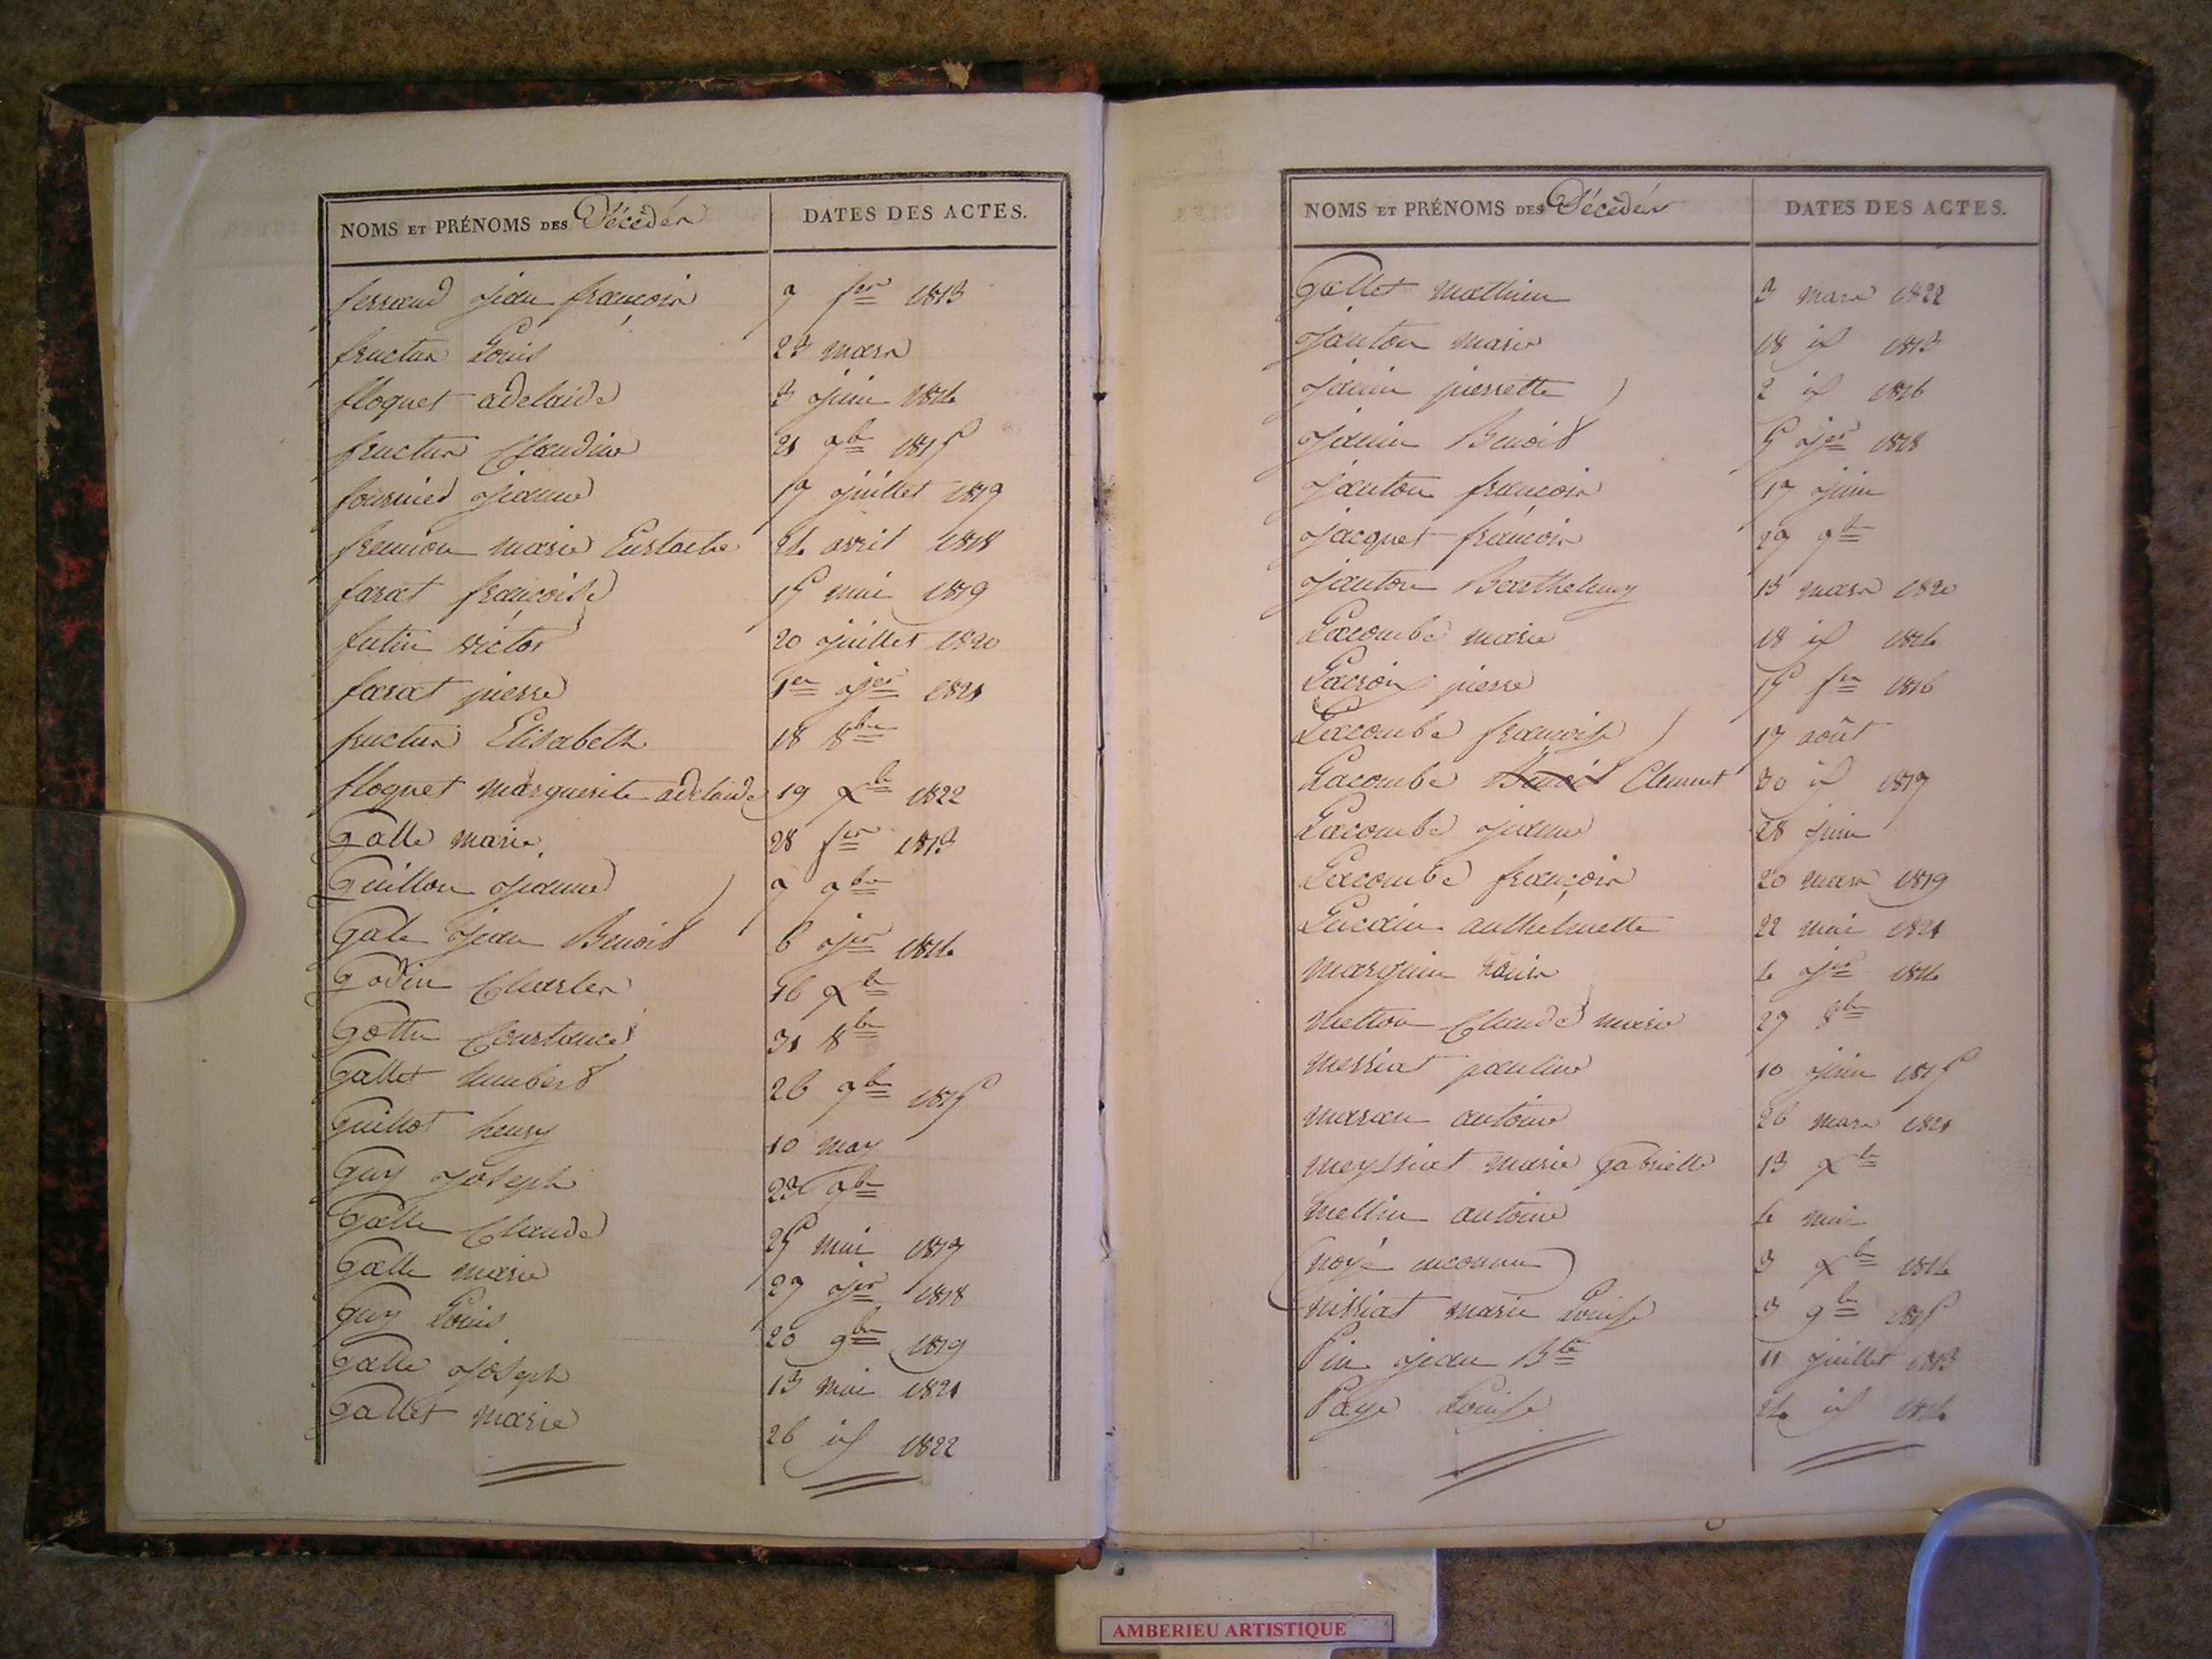 NOMS ET PRÉNOMS DES Décédés DATES DES ACTES.
ferrand jean françois 7 fer 1813
fructus Louis 23 mars
floquet adelaide 3 juin 1814
fructus Claudine 21 9bre 1815
fournier jeanne 17 juillet 1817
fremion marie Eustache 24 avril 1818
farat françoise 15 mai 1819
futin victor 20 juillet 1820
farat pierre 1er jer 1821
fructus Elisabeth 18 8bre
floquet marguerite adelaide 19 Xbre 1822
Galle marie 28 fer 1813
Guillon jeanne 7 9bre
Gale jean Benoit 6 jer 1814
Godin Charles 16 Xbre
Constance 31 8bre
Gallet humbert 26 9bre 1815
Guillot henry 10 may
Guy joseph 9bre
Galle Claude 25 mai 1817
Galle marie 27 jer 1818
Guy Louis 20 9bre 1819
Galle joseph 13 mai 1821
Gallet marie 26 id 1822
NOMS ET PRÉNOMS DES Décédés DATES DES ACTES.
Gallet mathieu 3 mars 1822
janton marie 18 id 1813
janin pierrette 2 id 1816
janin Benoit 5 jer 1818
janton françois 17 juin
jacquet françois 29 9bre
janton Barthelemy 13 mars 1820
Lacombe marie 18 id 1814
pierre 15 fer 1816
Lacombe françoise 17 août
Lacombe Benoit Clement 30 id 1817
Lacombe jeanne 28 juin
Lacombe françois 20 mars 1819
Lucain anthelmette 22 mai 1821
marguin Louis 4 jer 1814
metton Claude marie 27 8bre
messiat pauline 10 juin 1815
antoine 26 mars 1821
meyssiat marie Gabrielle 13 Xbre
mellin antoine 4 mai
noyé inconnu 3 Xbre 1814
nissiat marie Louise 3 9bre 1815
Pin jean Bte 11 juillet 1813
Page Louise 24 id 1814
AMBERIEU ARTISTIQUE